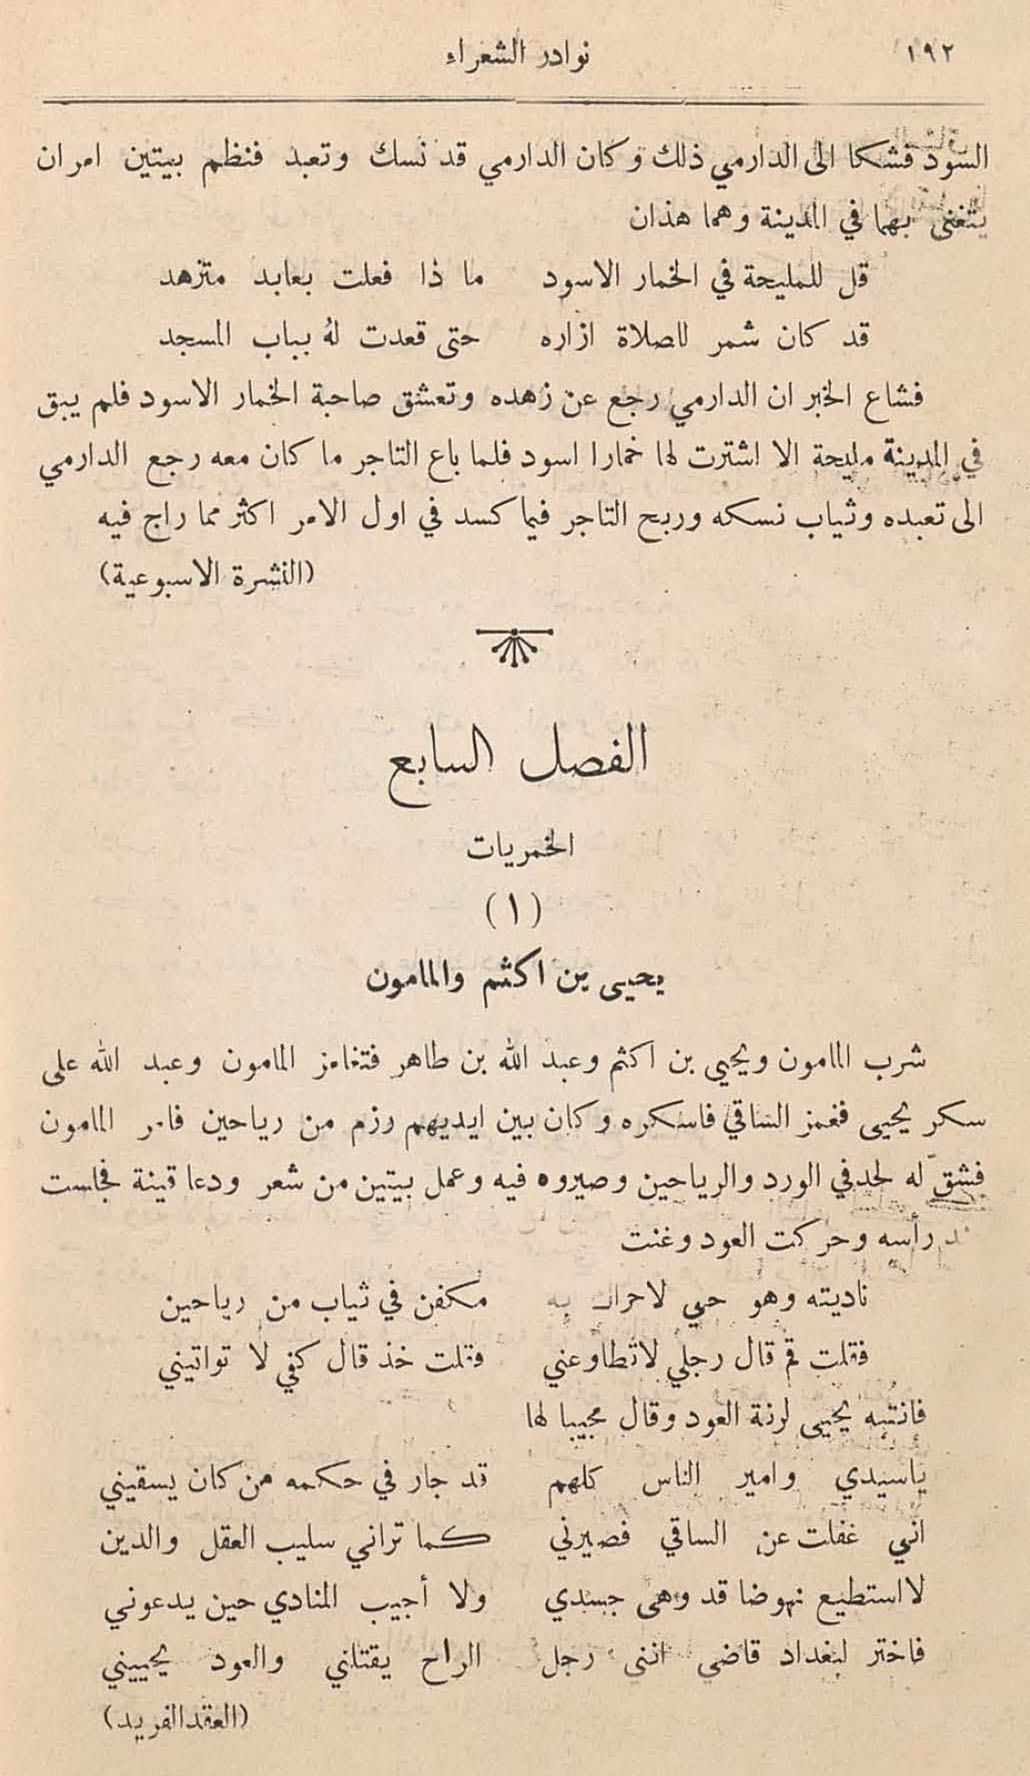 ١٩٢ نوادر الشعراء
السود فشكا الى الدارمي ذلك وكان الدارمي قد نسك وتعبد فنظم بيتين امر ان
يتغنى بهما في المدينة وهما هذان
قل للمليحة في الخمار الاسود ما ذا فعلت بعابد متزهد
قد كان شمر للصلاة ازاره حتى قعدت لهُ بباب المسجد
فشاع الخبر ان الدارمي رجع عن زهده وتعشق صاحبة الخمار الاسود فلم يبق
في المدينة مليحة الا اشترت لها خمارا اسود فلما باع التاجر ما كان معه رجع الدارمي
الى تعبده وثياب نسكه وربح التاجر فيما كسد في اول الامر اكثر مما راج فيه
(النشرة الاسبوعية)
الفصل السابع
الخمريات
(١)
يحيى بن اكثم والمامون
شرب المامون ويحيى بن اكثم وعبد الله بن طاهر فتغامز المامون وعبد الله على
سكر يحيى فغمز الساقي فاسكره وكان بين ايديهم رزم من رياحين فامر المامون
فشقّ له لحد في الورد والرياحين وصيروه فيه وعمل بيتين من شعر ودعا قينة فجلست
رأسه وحركت العود وغنت
ناديته وهو حي لا حراك به مكفن في ثياب من رياحين
فقلت قم قال رجلي لا تطاوعني فقلت خذ قال كفي لا تواتيني
فانتبه يحيى لرنة العود وقال مجيبا لها
ياسيدي وامير الناس كلهم قد جار في حكمه من كان يسقيني
اني غفلت عن الساقي فصيرني كما تراني سليب العقل والدين
لا استطيع نهوضا قد وهى جسدي ولا أجيب المنادي حين يدعوني
فاختر لبغداد قاضي انني رجل الراح يقتلني والعود يحييني
(العقد الفريد)